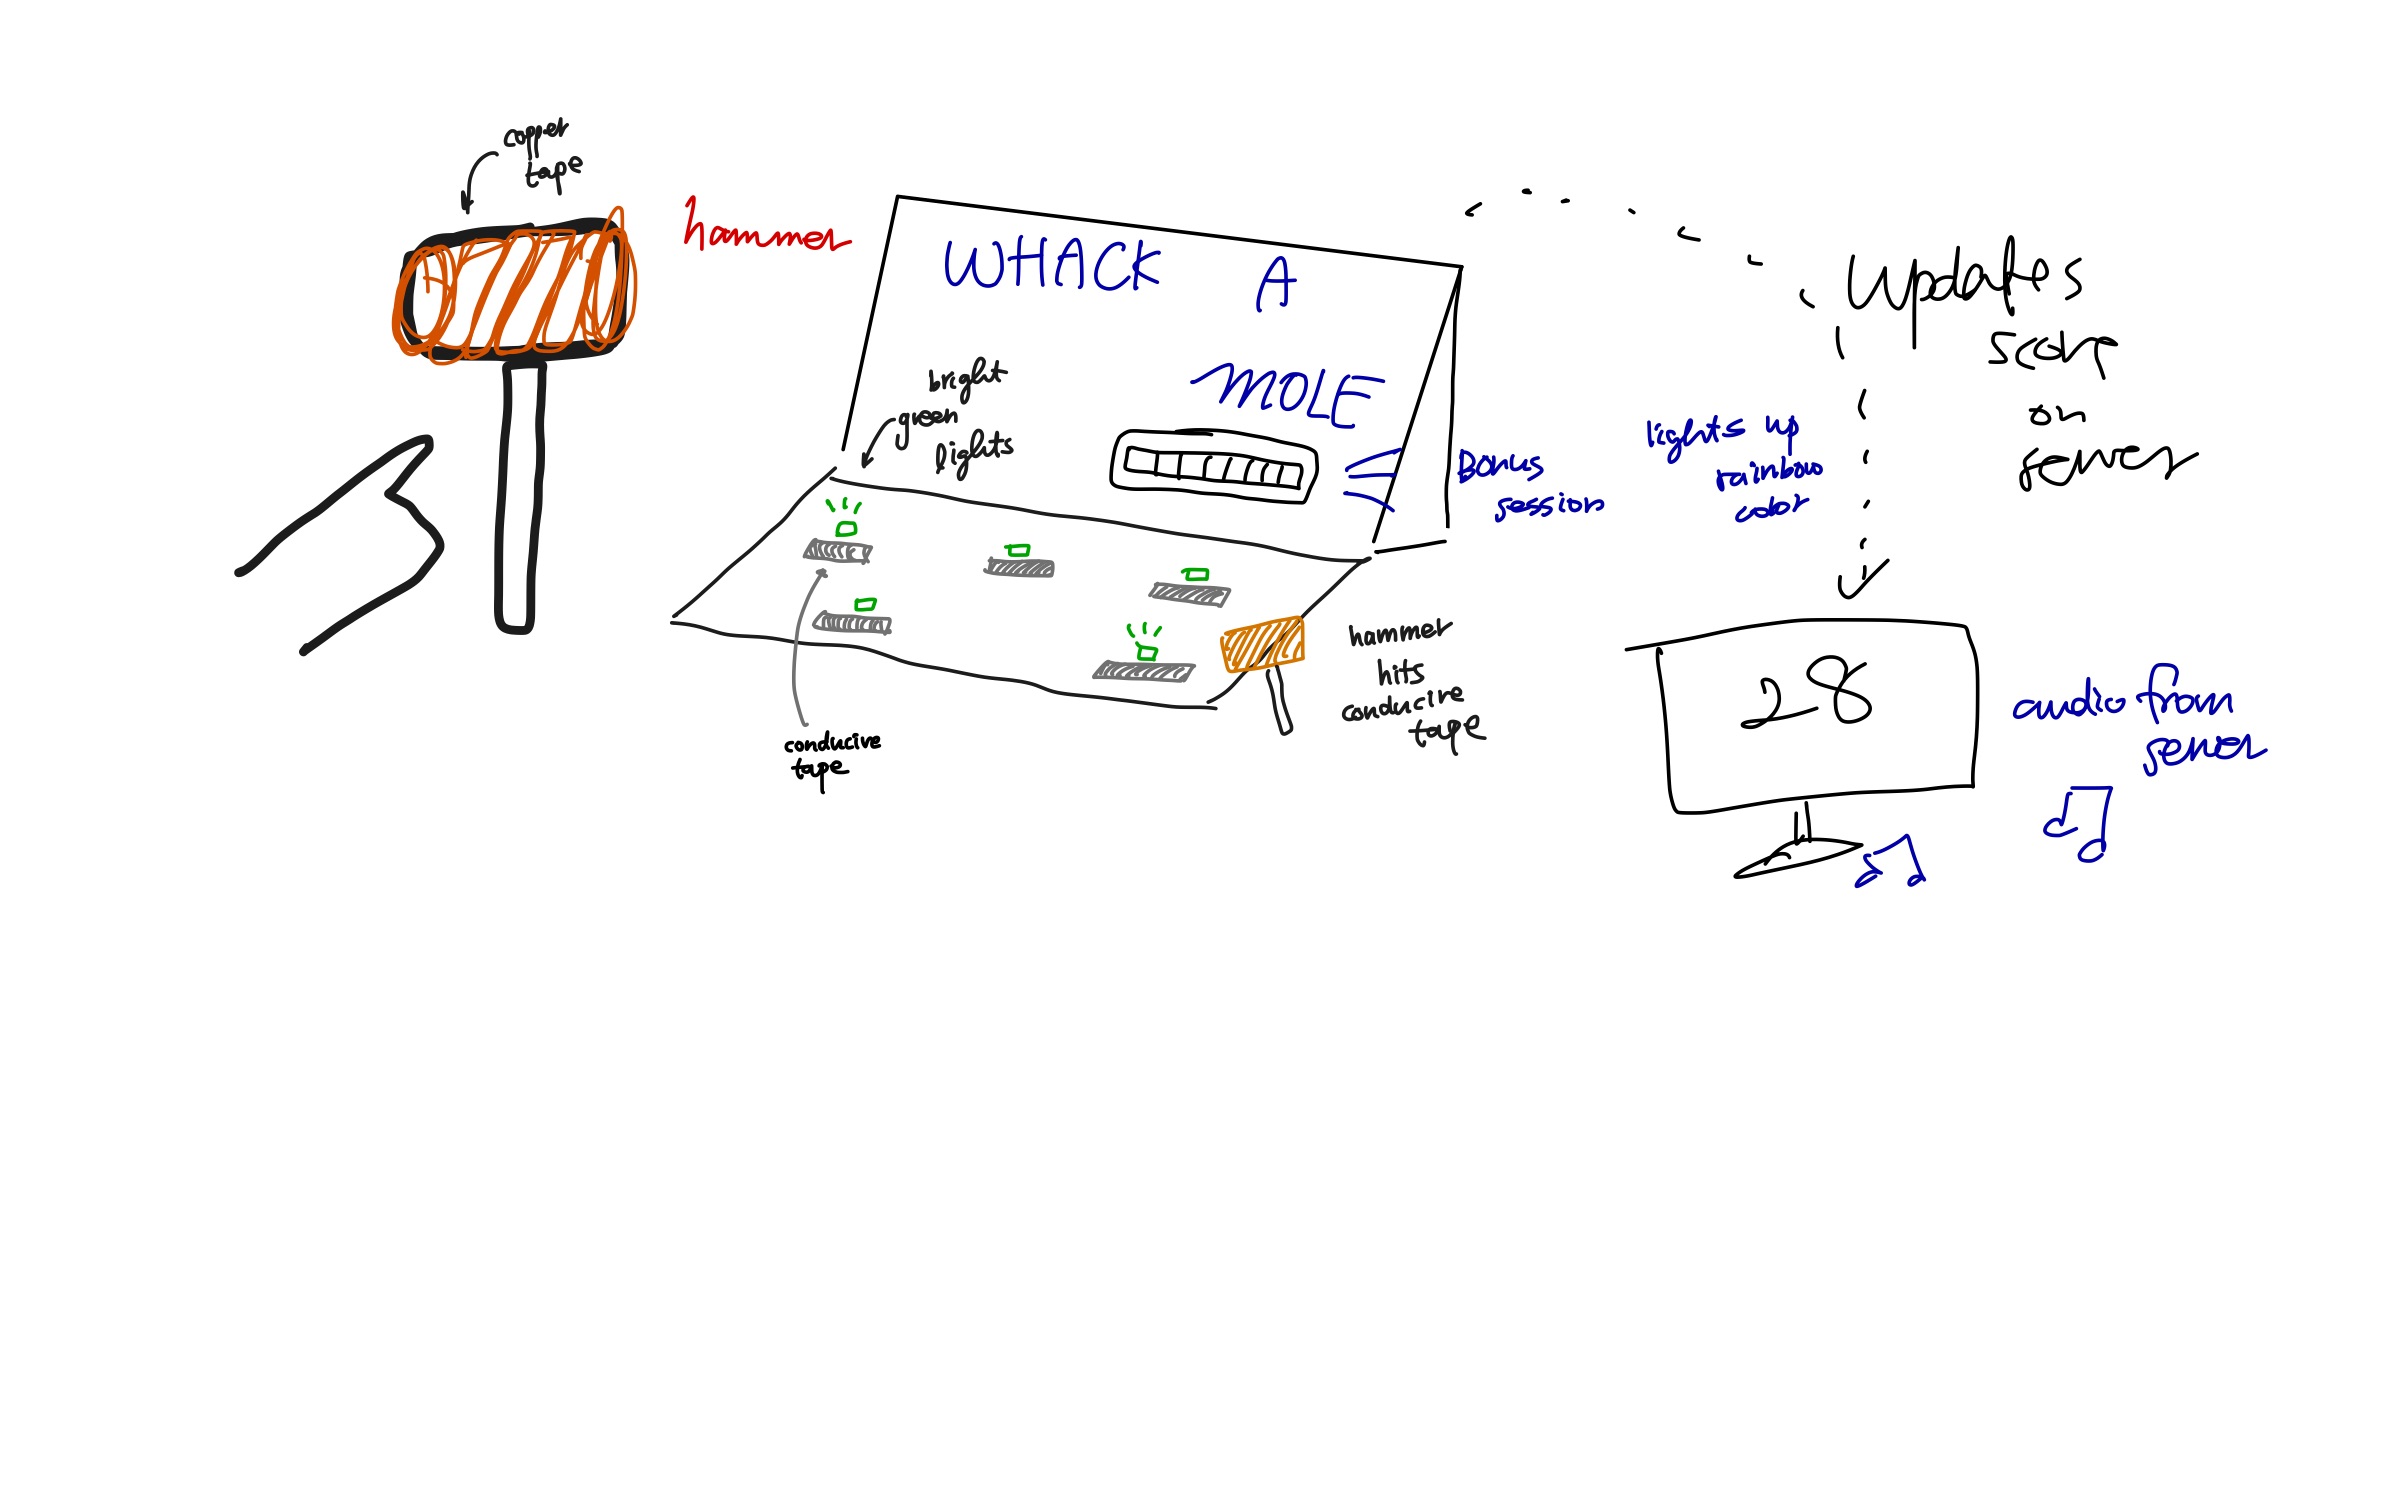 copper
tape
hammer
WHACK A
MOLE
bright
green
lights
Bonus
session
lights up
rainbow
color
updates
score
on
server
conducive
tape
hammer
hits
conducive
tape
28
audio from
server